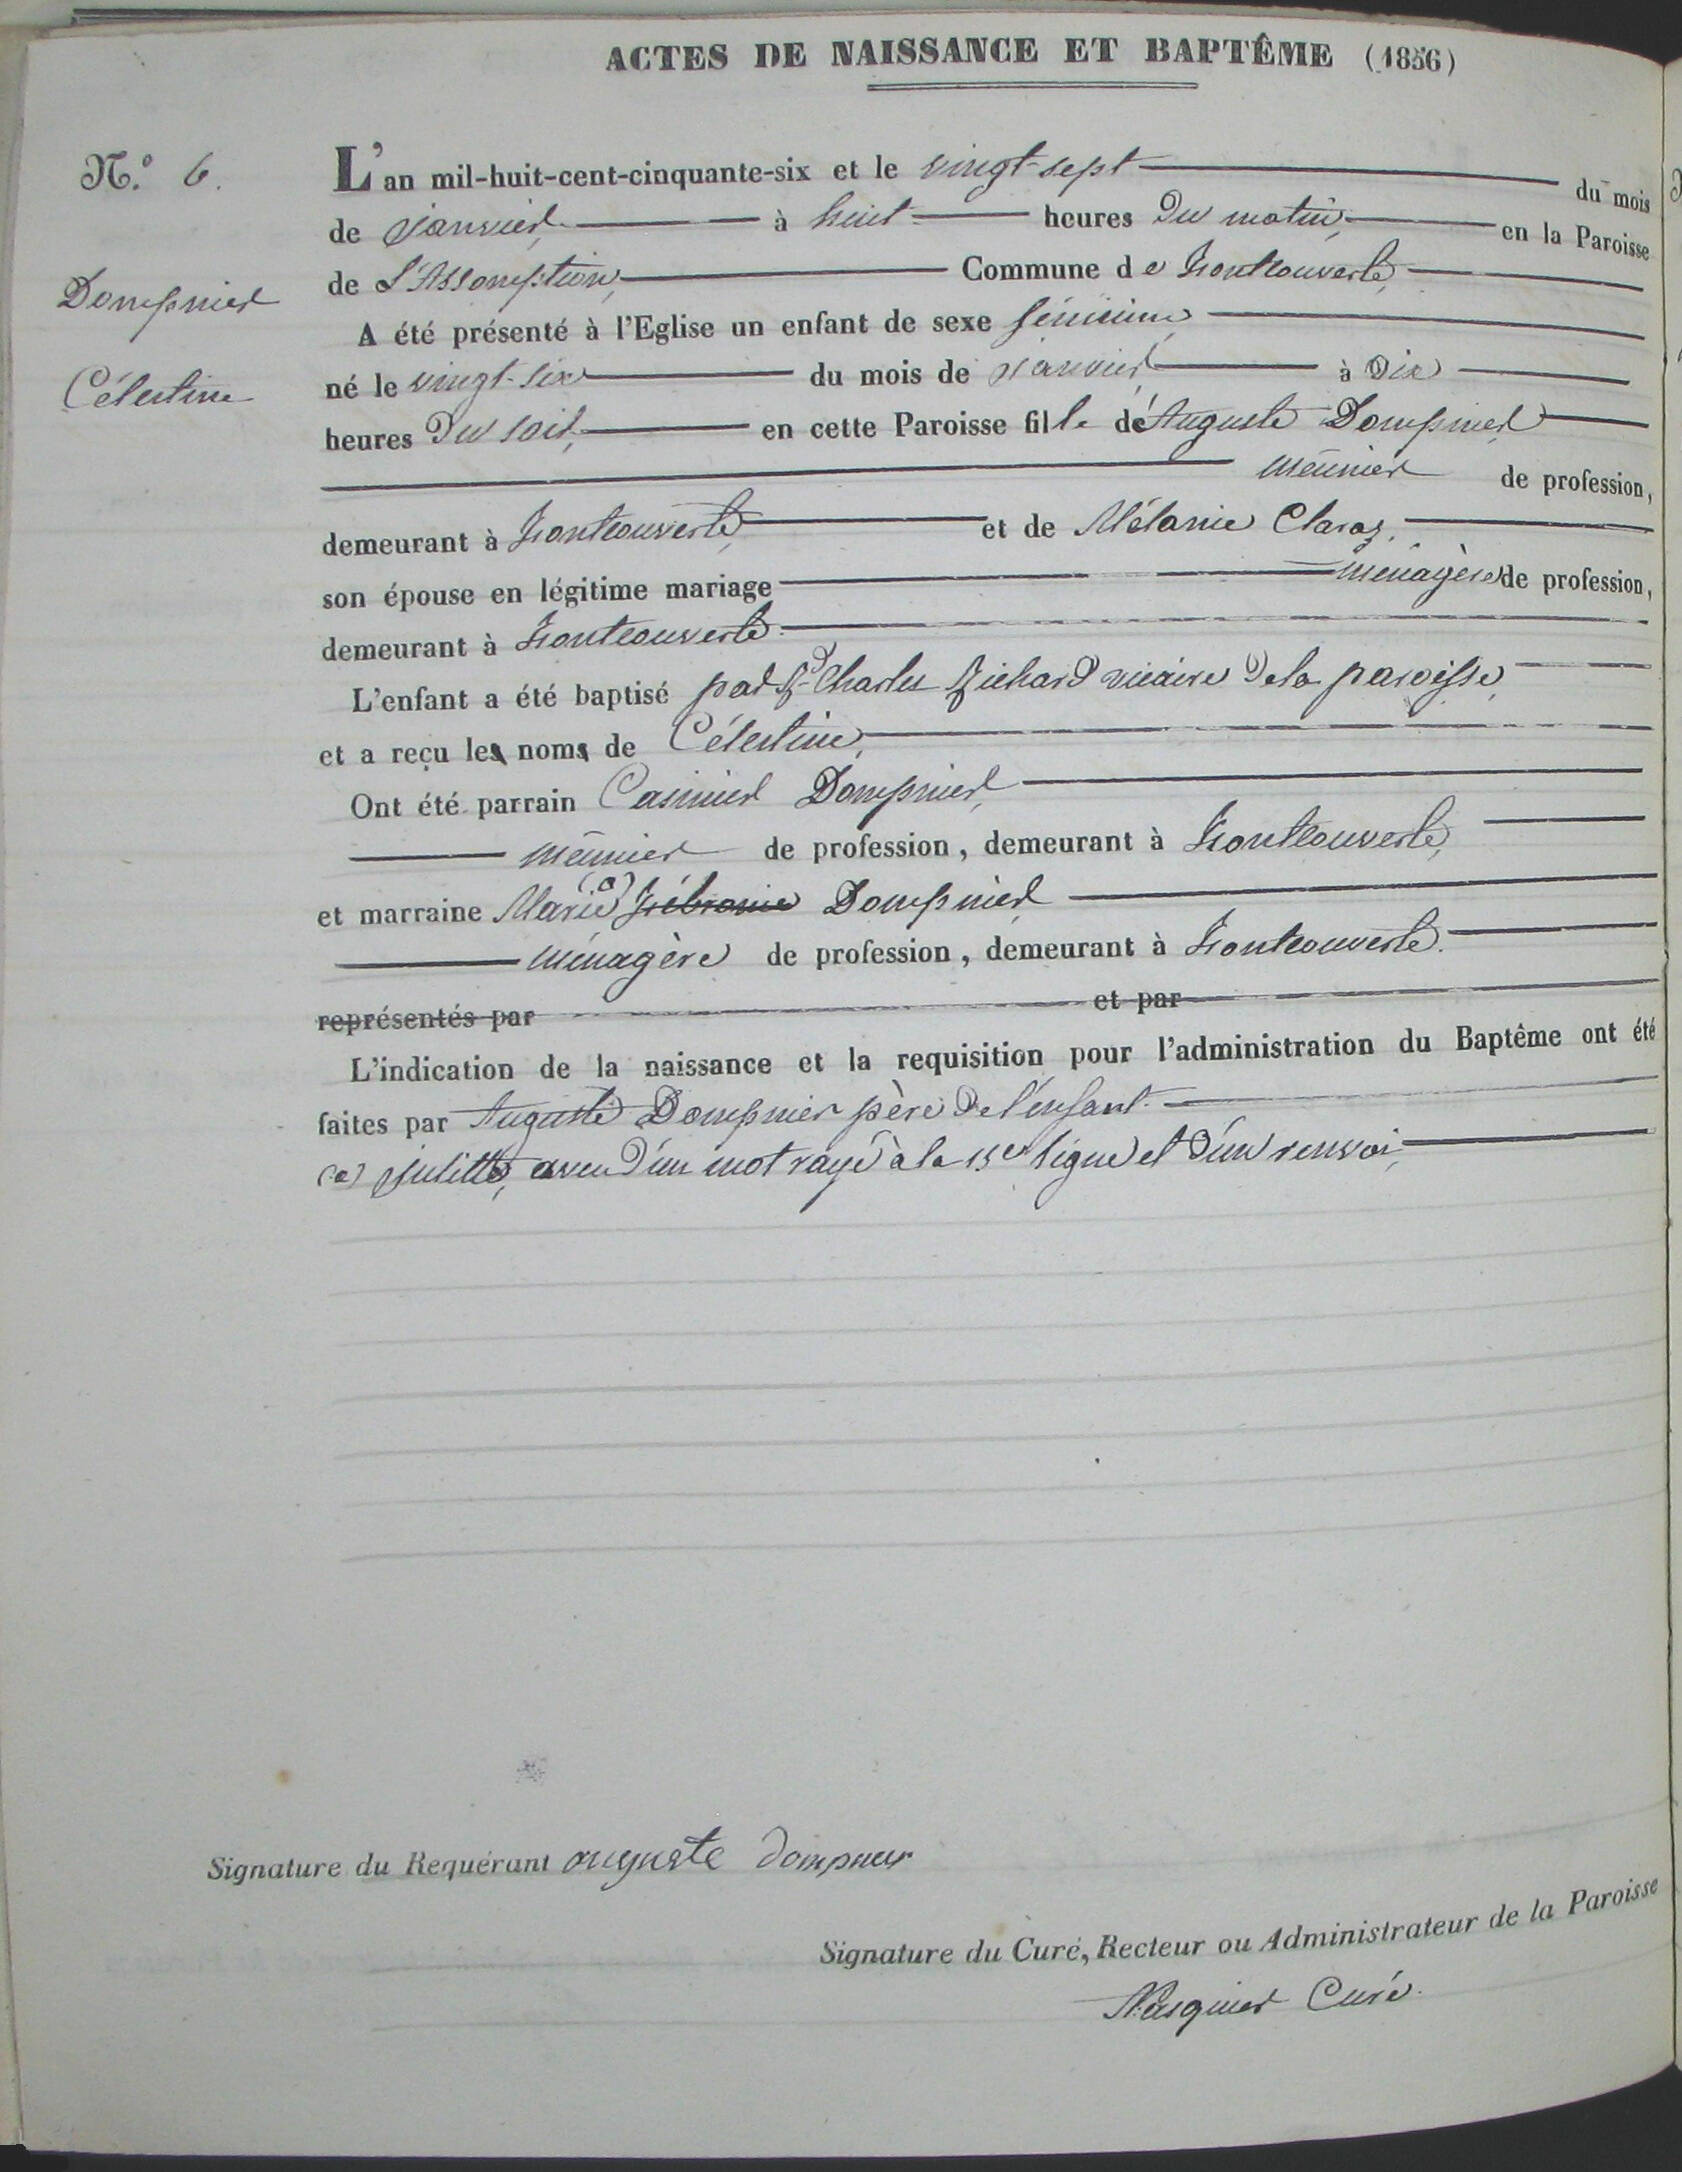 ACTES DE NAISSANCE ET BAPTÊME (1856)
N.° 6.
L'an mil-huit-cent-cinquante-six et le vingt-sept du mois
de janvier, à huit heures du matin, en la Paroisse
de L'Assomption, Commune de Montcouverte,
Dompnier
A été présenté à l'Eglise un enfant de sexe féminin,
Célestine
né le vingt-six du mois de janvier, à dix
heures du soir, en cette Paroisse fille de Auguste Dompnier,
meûnier de profession,
demeurant à Fontcouverte, et de Mélanie Claraz,
son épouse en légitime mariage ménagère de profession,
demeurant à Fontcouverte.
L'enfant a été baptisé par Rd Charles Richard vicaire de la paroisse,
et a reçu les noms de Célestine,
Ont été parrain Casimir Dompnier,
meûnier de profession, demeurant à Fontcouverte,
et marraine Marie (a) Fébronie Dompnier,
ménagère de profession, demeurant à Fontcouverte.
représentés par et par
L'indication de la naissance et la requisition pour l'administration du Baptême ont été
faites par Auguste Dompnier père de l'enfant.
(a) Julitte, aveu d'un mot rayé à la 13e ligne et d'un renvoi,
Signature du Requérant auguste dompnier
Signature du Curé, Recteur ou Administrateur de la Paroisse
Curé.